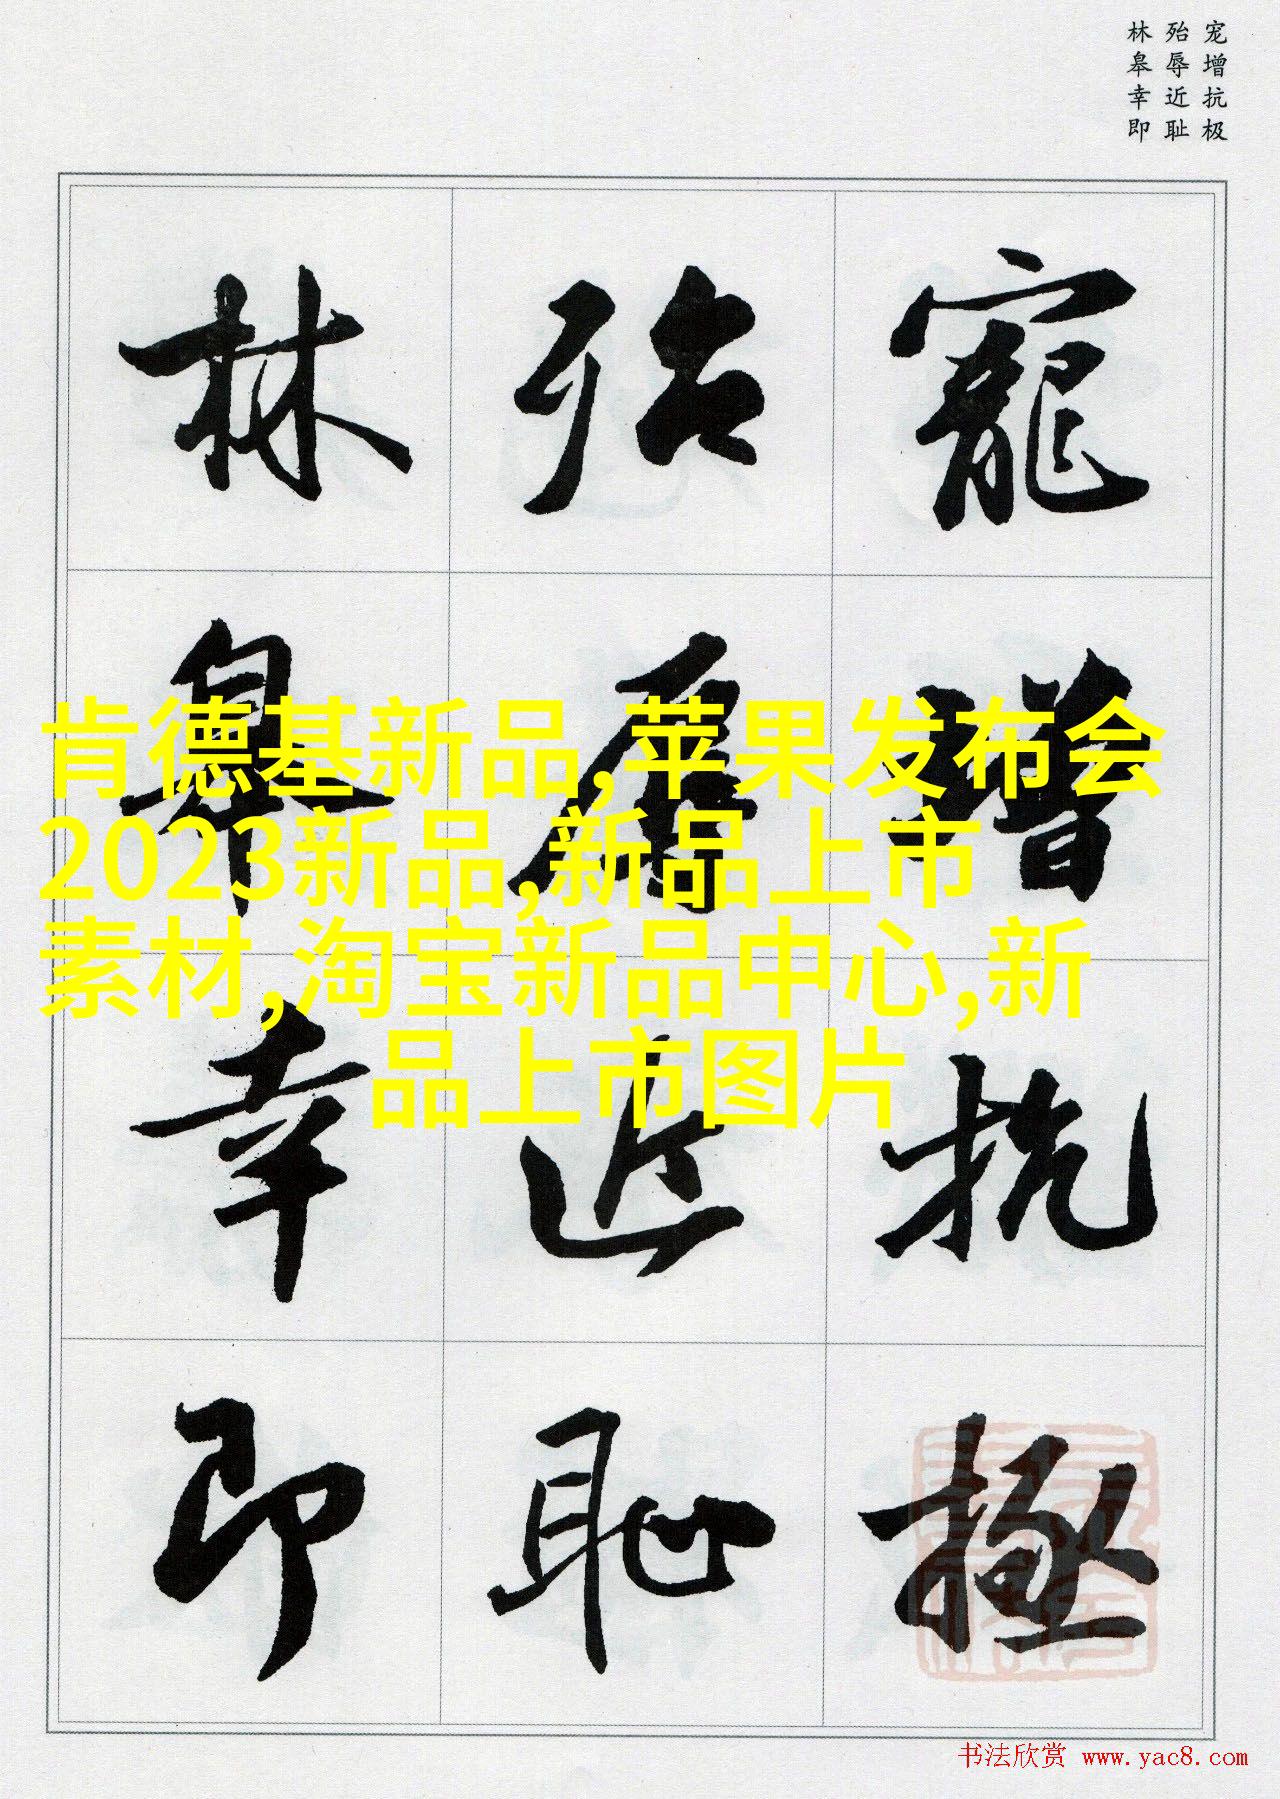 宠增抗极
殆辱近耻
林皋幸即
寵增抗極
殆辱近恥
林皋幸即
肯德基新品,苹果发布会
2023新品,新品上市
素材,淘宝新品中心,新
品上市图片
书法欣赏 www.yac8.com